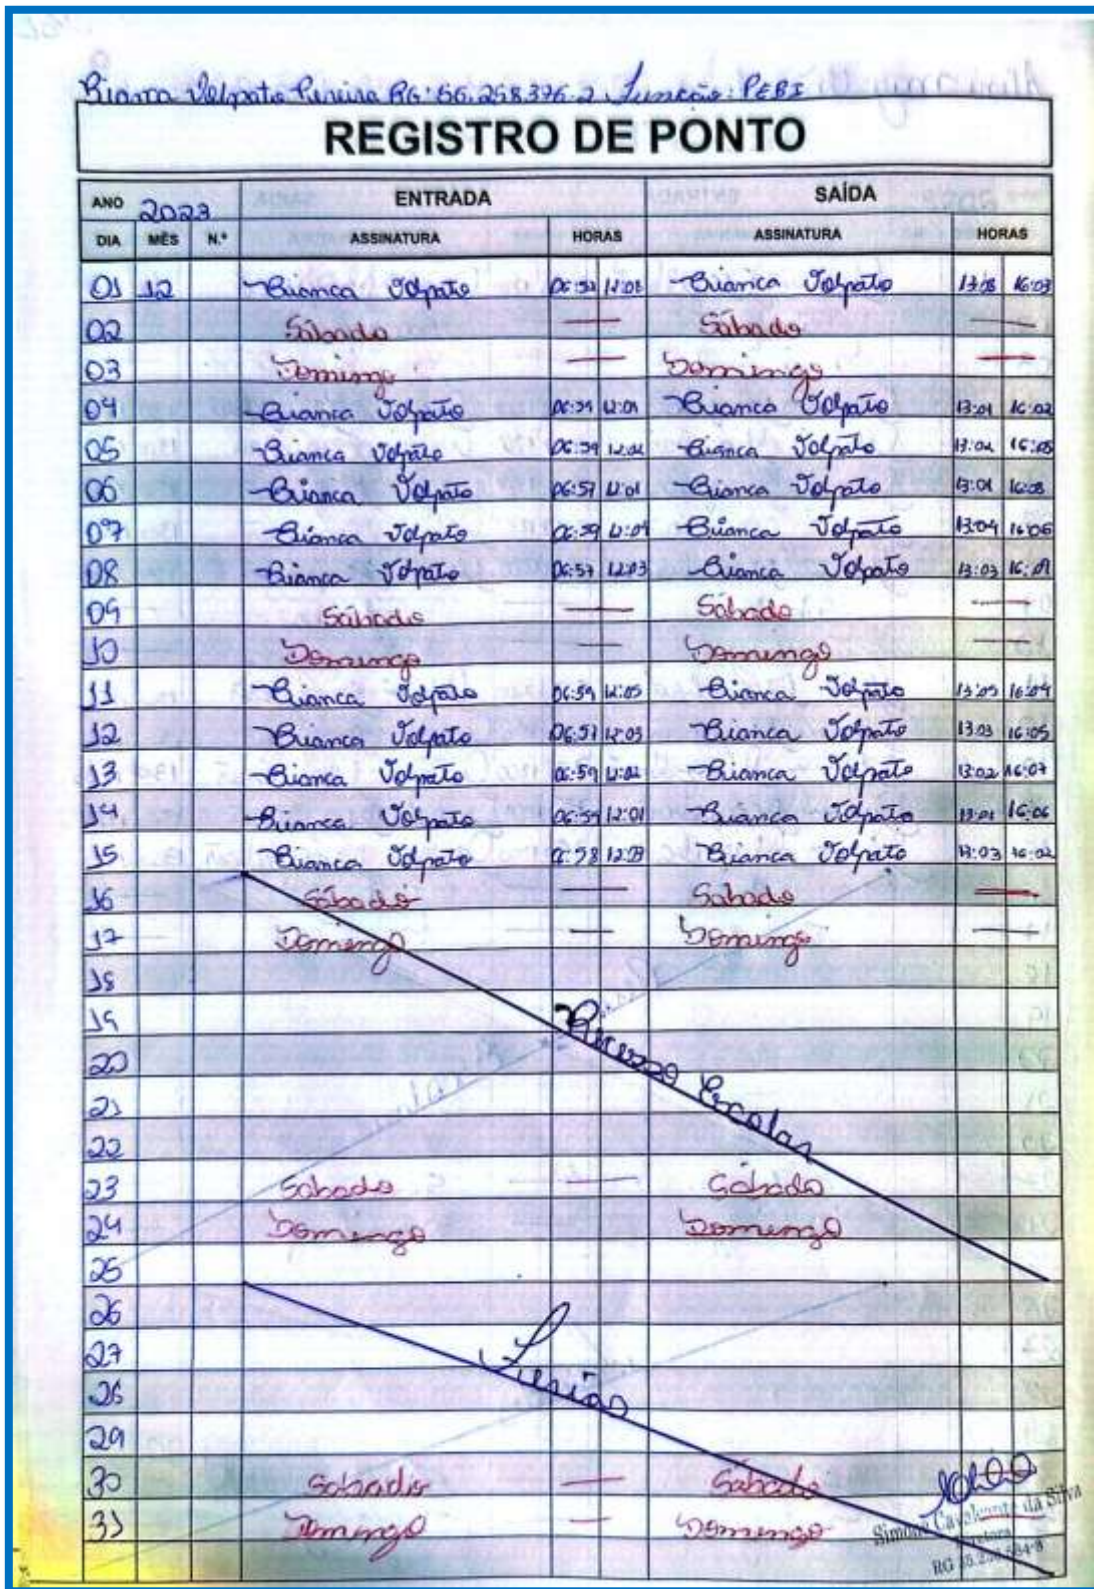 Bianca Volpato Pereira RG: 56.258.376-2 Função: PEBI
REGISTRO DE PONTO
ANO 2023 ENTRADA SAÍDA
DIA MÊS N.º ASSINATURA HORAS ASSINATURA HORAS
01 12 Bianca Volpato 12:08 Bianca Volpato 13:08 16:03
02 Sábado — Sábado —
03 Domingo — Domingo —
04 Bianca Volpato 06:59 12:01 Bianca Volpato 13:01 16:02
05 Bianca Volpato 06:59 12:02 Bianca Volpato 13:02 16:05
06 Bianca Volpato 06:57 12:01 Bianca Volpato 13:01 16:08
07 Bianca Volpato 06:59 12:04 Bianca Volpato 13:04 16:06
08 Bianca Volpato 06:57 12:03 Bianca Volpato 13:03 16:01
09 Sábado — Sábado —
10 Domingo — Domingo —
11 Bianca Volpato 06:59 12:05 Bianca Volpato 13:05 16:04
12 Bianca Volpato 06:57 12:03 Bianca Volpato 13:03 16:05
13 Bianca Volpato 06:59 12:02 Bianca Volpato 13:02 16:07
14 Bianca Volpato 06:59 12:01 Bianca Volpato 13:01 16:06
15 Bianca Volpato 06:58 12:03 Bianca Volpato 13:03 16:02
16 Sábado — Sábado —
17 Domingo — Domingo —
18
19 Recesso Escolar
20
21
22
23 Sábado — Sábado
24 Domingo Domingo
25
26
27 Férias
28
29
30 Sábado — Sábado
31 Domingo — Domingo
Simone Cavalcante da Silva
Diretora
RG